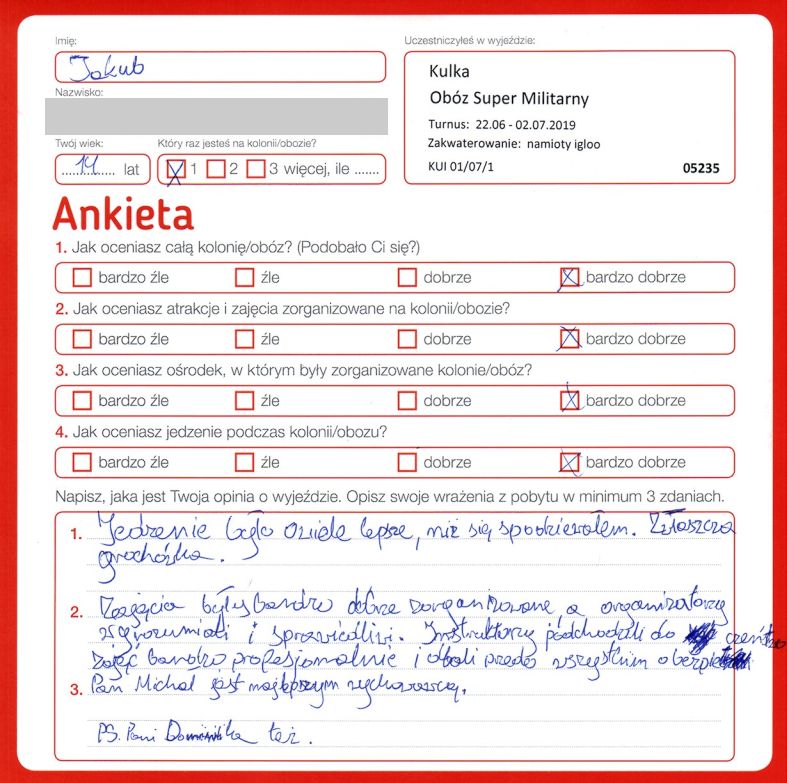 Imię:
Jakub
Nazwisko:
Twój wiek:
14 lat
Który raz jesteś na kolonii/obozie?
1 2 3 więcej, ile .......
Uczestniczyłeś w wyjeździe:
Kulka
Obóz Super Militarny
Turnus: 22.06 - 02.07.2019
Zakwaterowanie: namioty igloo
KUI 01/07/1 05235
Ankieta
1. Jak oceniasz całą kolonię/obóz? (Podobało Ci się?)
bardzo źle źle dobrze bardzo dobrze
2. Jak oceniasz atrakcje i zajęcia zorganizowane na kolonii/obozie?
bardzo źle źle dobrze bardzo dobrze
3. Jak oceniasz ośrodek, w którym były zorganizowane kolonie/obóz?
bardzo źle źle dobrze bardzo dobrze
4. Jak oceniasz jedzenie podczas kolonii/obozu?
bardzo źle źle dobrze bardzo dobrze
Napisz, jaka jest Twoja opinia o wyjeździe. Opisz swoje wrażenia z pobytu w minimum 3 zdaniach.
1. Jedzenie było o wiele lepsze, niż się spodziewałem. Zwłaszcza
grochówka.
2. Zajęcia były bardzo dobrze zorganizowane a organizatorzy
wyrozumiali i sprawiedliwi. Instruktorzy podchodzili do
zajęć bardzo profesjonalnie i dbali przede wszystkim o
3. Pan Michał jest najlepszym wychowawcą.
PS. Pani Dominika też.